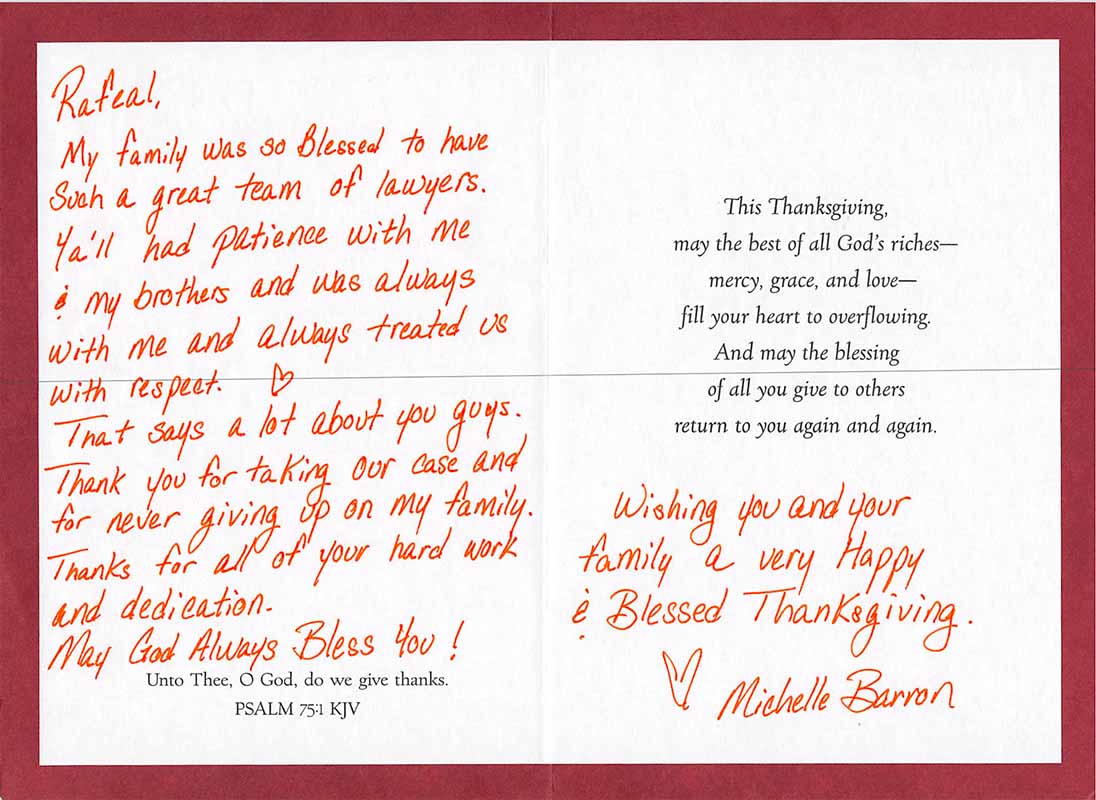 Rafeal,
My family was so Blessed to have
Such a great team of lawyers.
Ya'll had patience with me
& my brothers and was always
with me and always treated us
with respect. ♡
That says a lot about you guys.
Thank you for taking our case and
for never giving up on my family.
Thanks for all of your hard work
and dedication.
May God Always Bless You!
Unto Thee, O God, do we give thanks.
PSALM 75:1 KJV
This Thanksgiving,
may the best of all God's riches—
mercy, grace, and love—
fill your heart to overflowing.
And may the blessing
of all you give to others
return to you again and again.
Wishing you and your
family a very Happy
& Blessed Thanksgiving.
♡ Michelle Barron